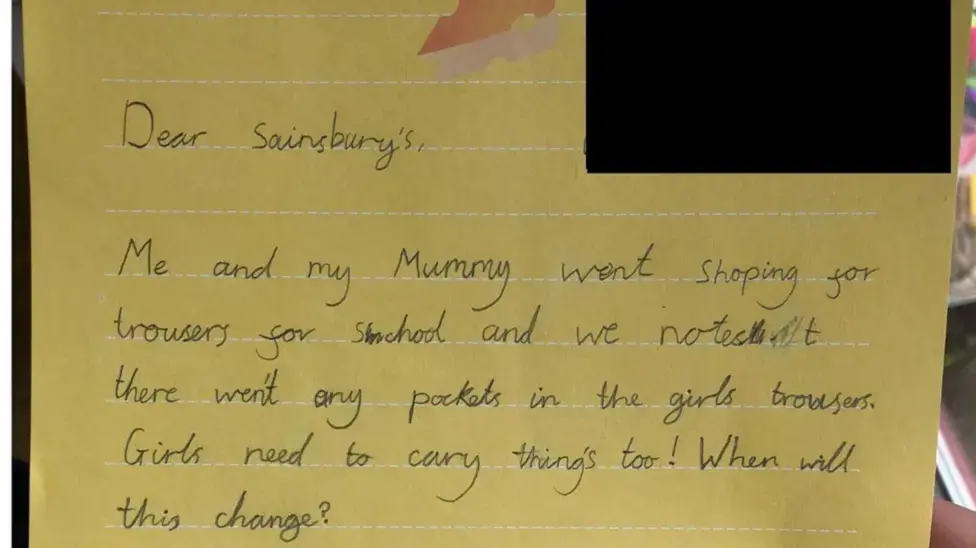 Dear Sainsbury's,
Me and my Mummy went shoping for
trousers for school and we
there wen't any pockets in the girls trowsers.
Girls need to cary thing's too! When will
this change?